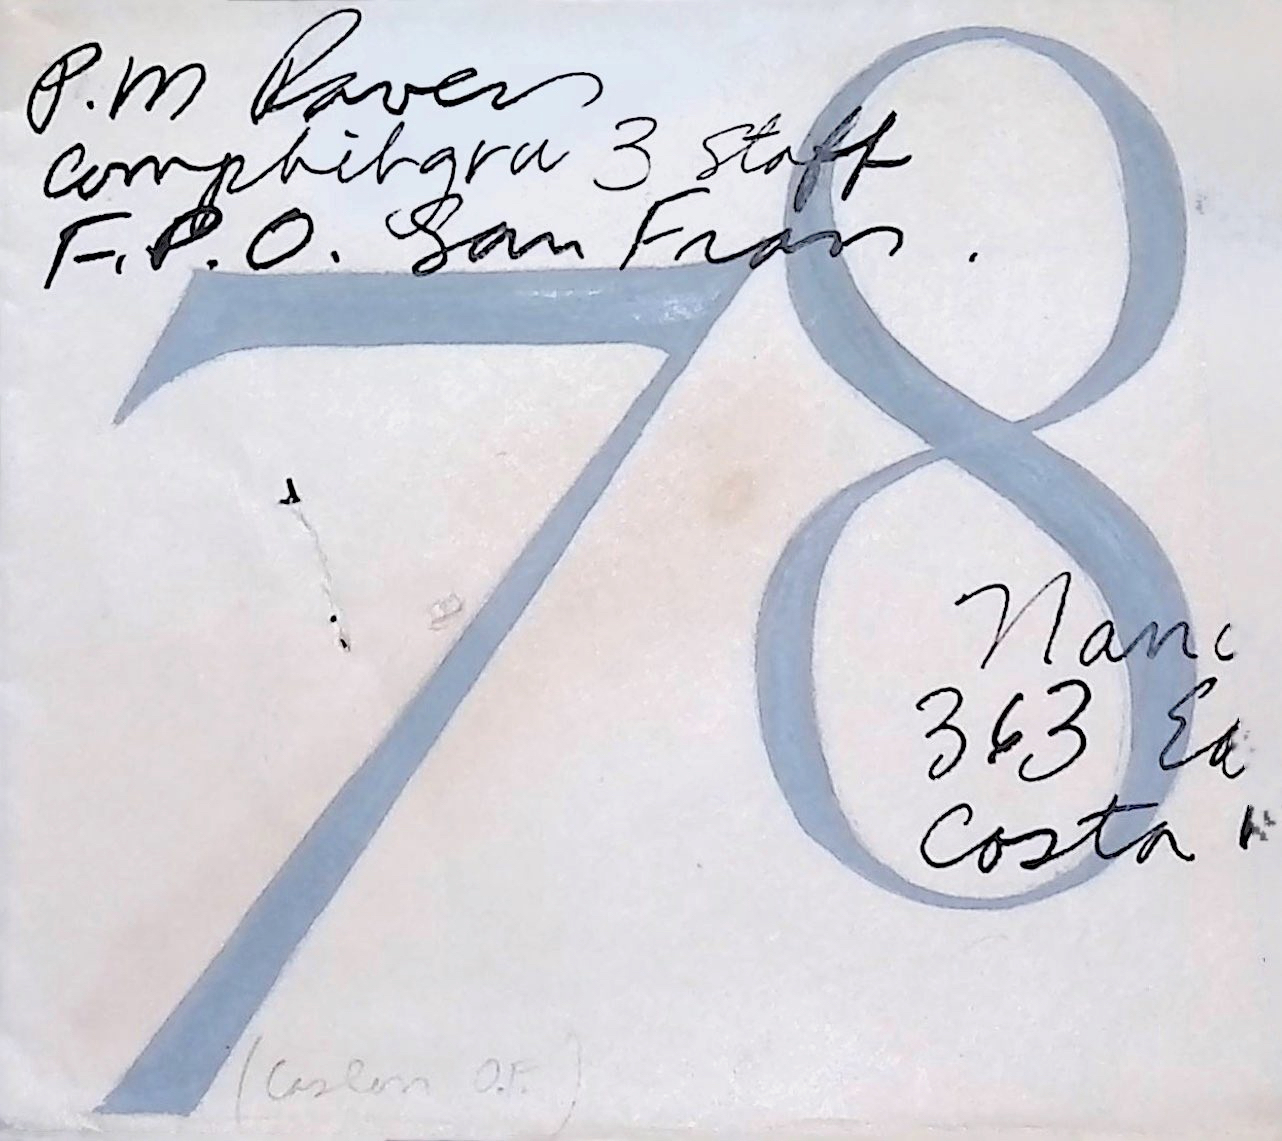 P.M Ravers
comphibgru 3 staff
F.P.O. San Fran .
78
Nanc
363 Ea
Costa
(Caslon O.F.)